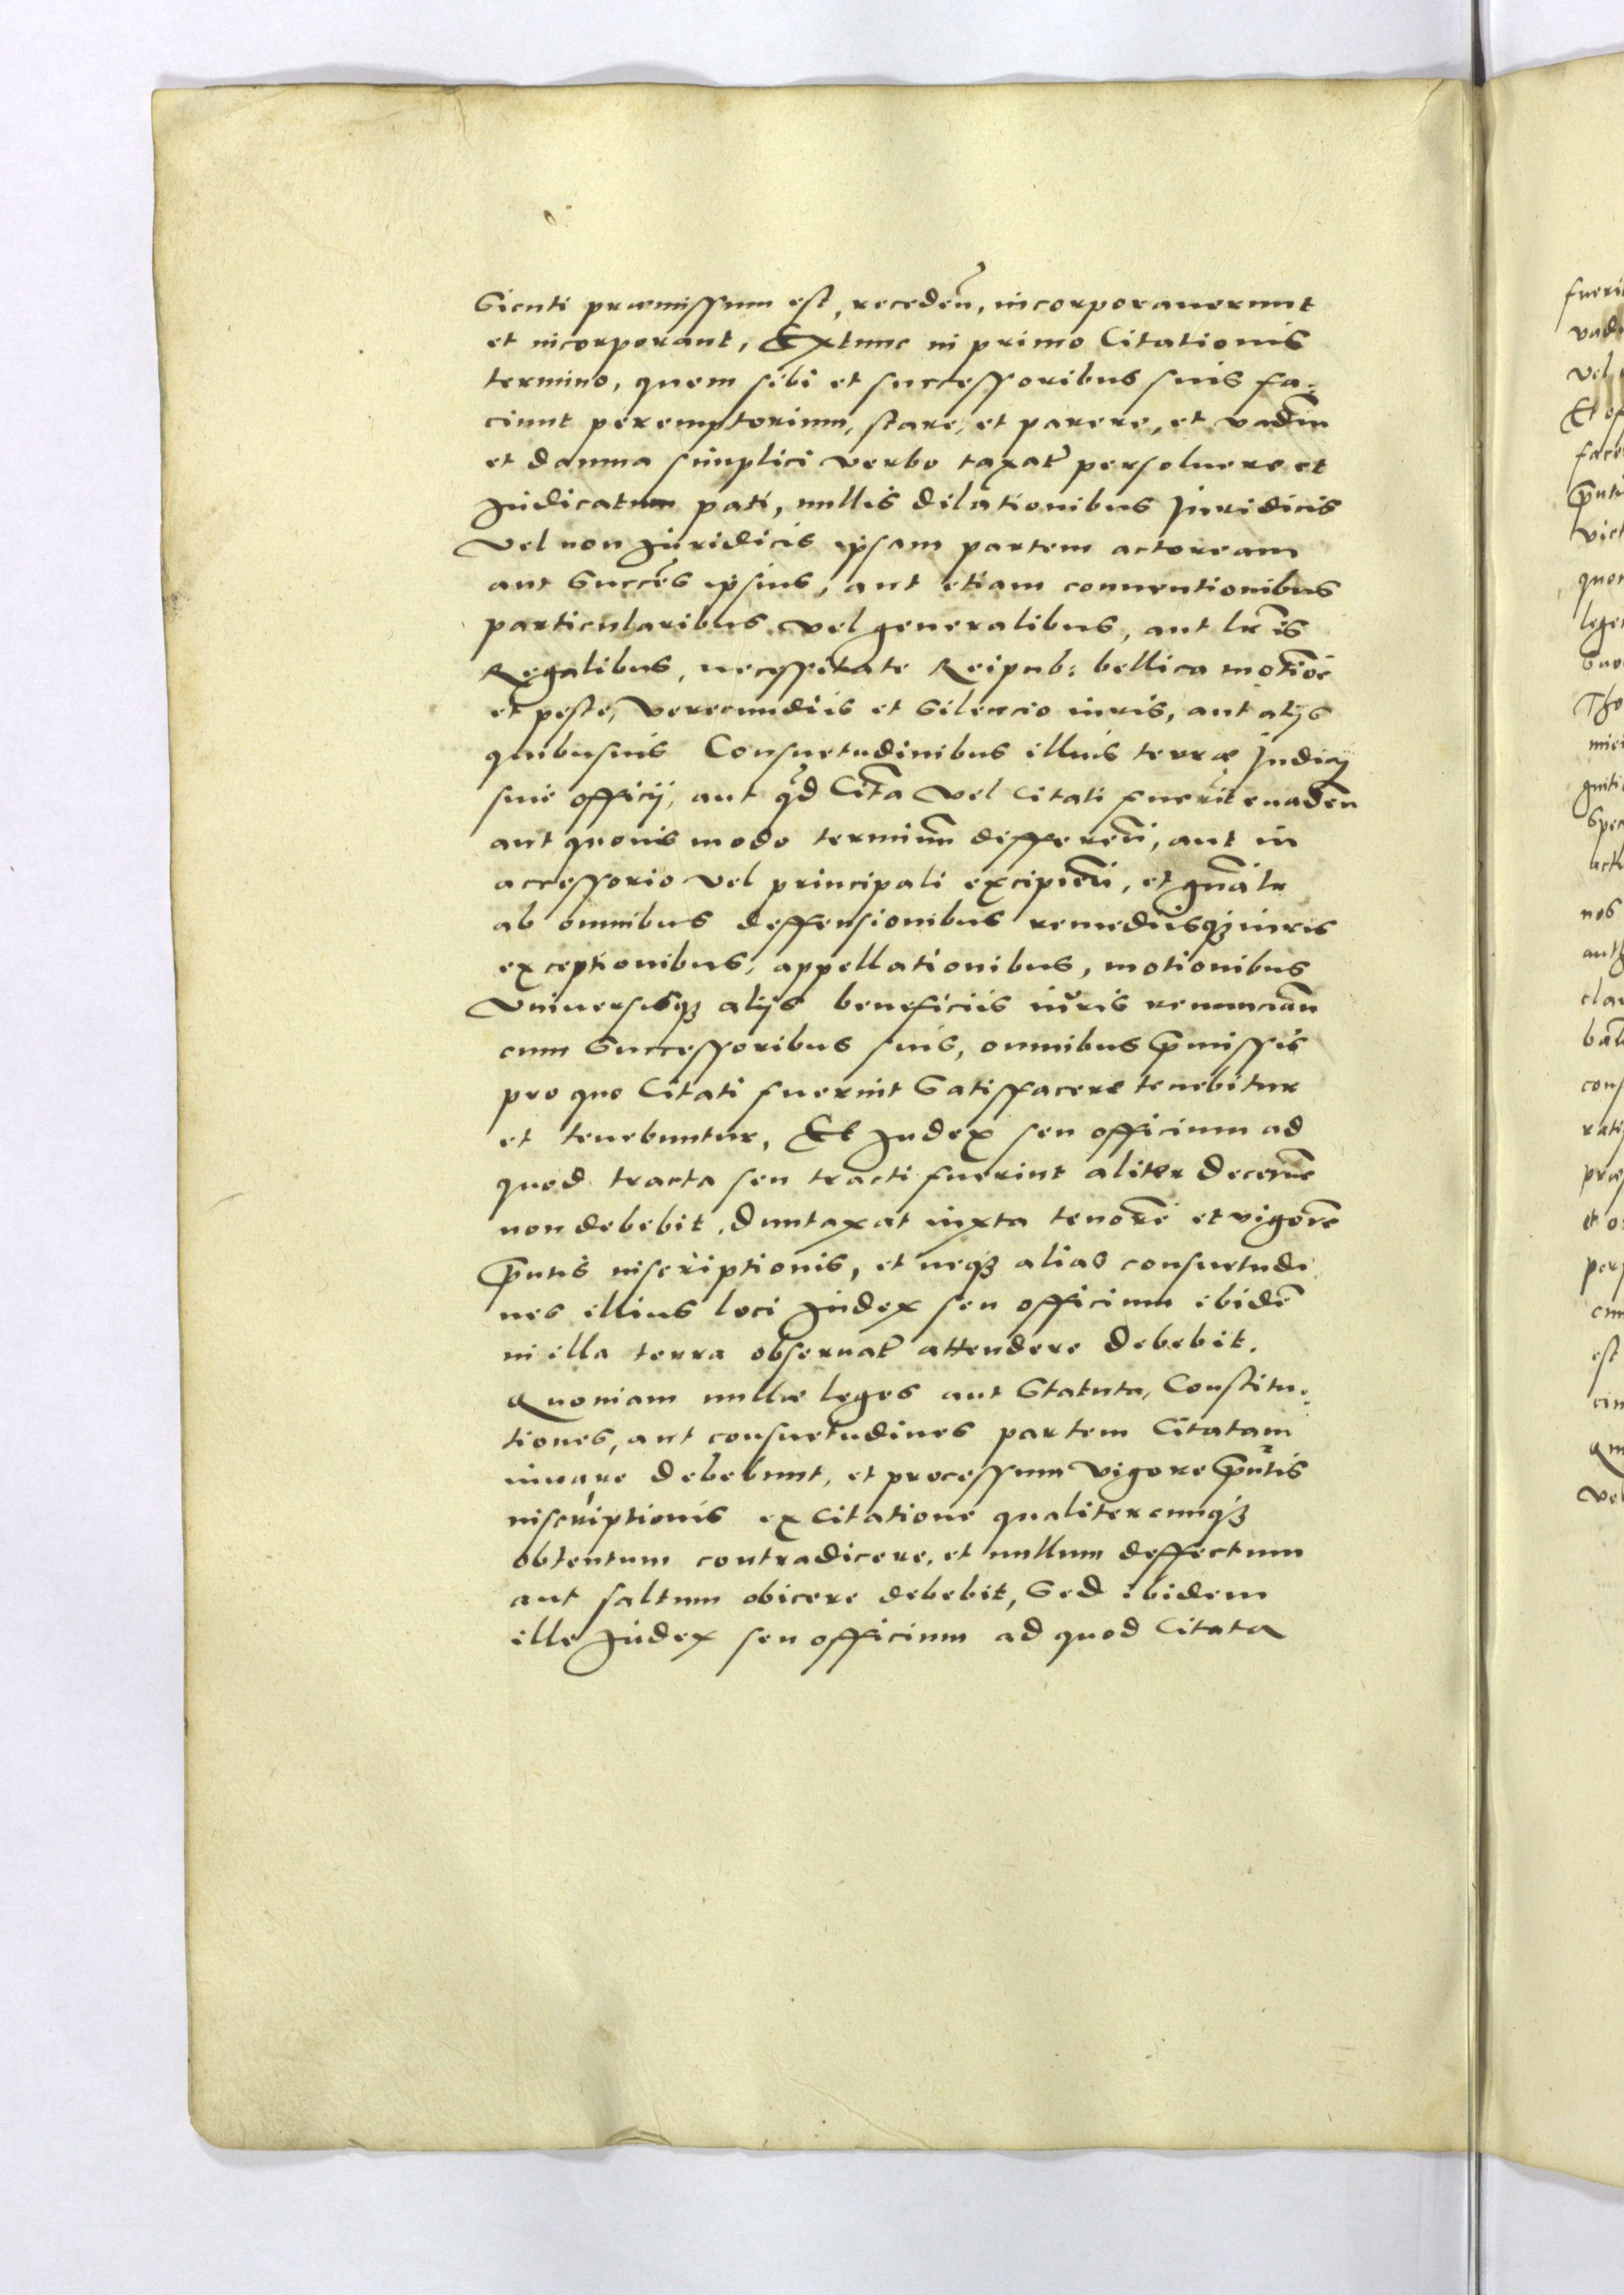 Sicuti præmissum est, recedeñ, incorporauerunt
et incorporant, Extunc in primo Citationis
termino, quem sibi et successoribus suis fa-
ciunt peremptorium, stare, et parere, et vadiũ
et damna simplici verbo taxat̃ persoluere et
Iudicatum pati, nullis dilationibus Iuridicis
vel non Iuridicis ipsam partem actoream
aut Succẽs ipsius, aut etiam conuentionibus
particularibus vel generalibus, aut lr̃is
Regalibus, necessitate Reipub: bellica motiõe
et peste, verecundiis et Silencio iuris, aut alijs
quibusuis Consuetudinibus illius terræ Iudicij
siue officij, aut q̃d Cit̃a vel Citati fuerit euadeñ
aut quouis modo terminũ differeñ, aut in
accessorio vel principali excipieñ, et gñalr
ab omnibus deffensionibus remediisq3 iuris
exceptionibus, appellationibus, motionibus
Vniuersisq3 alijs beneficiis iuris renunciañ
cum Successoribus suis, omnibus p̃missis
pro quo Citati fuerint Satisfacere tenebitur
et tenebuntur, Et Iudex seu officium ad
quod tracta seu tracti fuerint aliter decerñe
non debebit, duntaxat iuxta tenorẽ et vigorẽ
p̃ntis inscriptionis, et neq3 alias consuetudi
nes illius loci Iudex seu officium ibidẽ
in illa terra obseruat̃ attendere debebit.
Quoniam nullæ leges aut Statuta, Constitu-
tiones, aut consuetudines partem Citatam
iuuare debebunt, et processum vigore p̃ntis
inscriptionis ex Citatione qualitercunq3
obtentum contradicere, et nullum deffectum
aut saltum obicere debebit, Sed ibidem
ille Iudex seu officium ad quod Citata